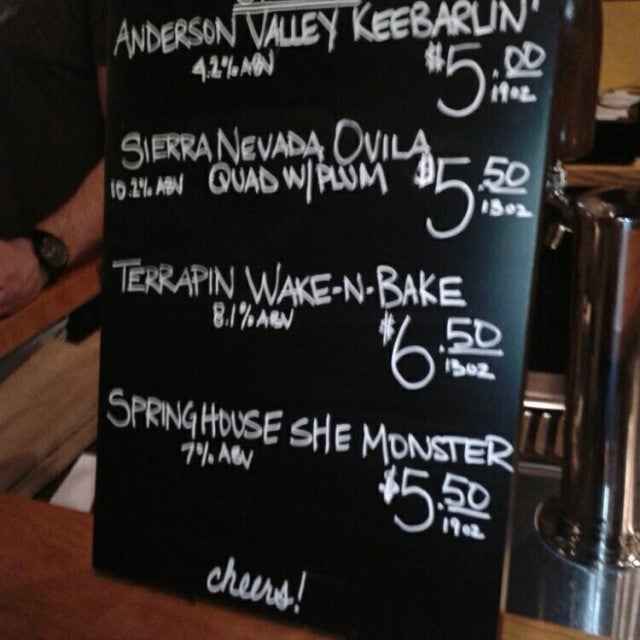 ANDERSON VALLEY KEEBARLIN'
4.2% ABV
$5.00
19oz
SIERRA NEVADA OVILA
10.2% ABV QUAD W/PLUM $5.50
13oz
TERRAPIN WAKE-N-BAKE
8.1% ABV
$6.50
13oz
SPRINGHOUSE SHE MONSTER
7% ABV
$5.50
19oz
cheers!